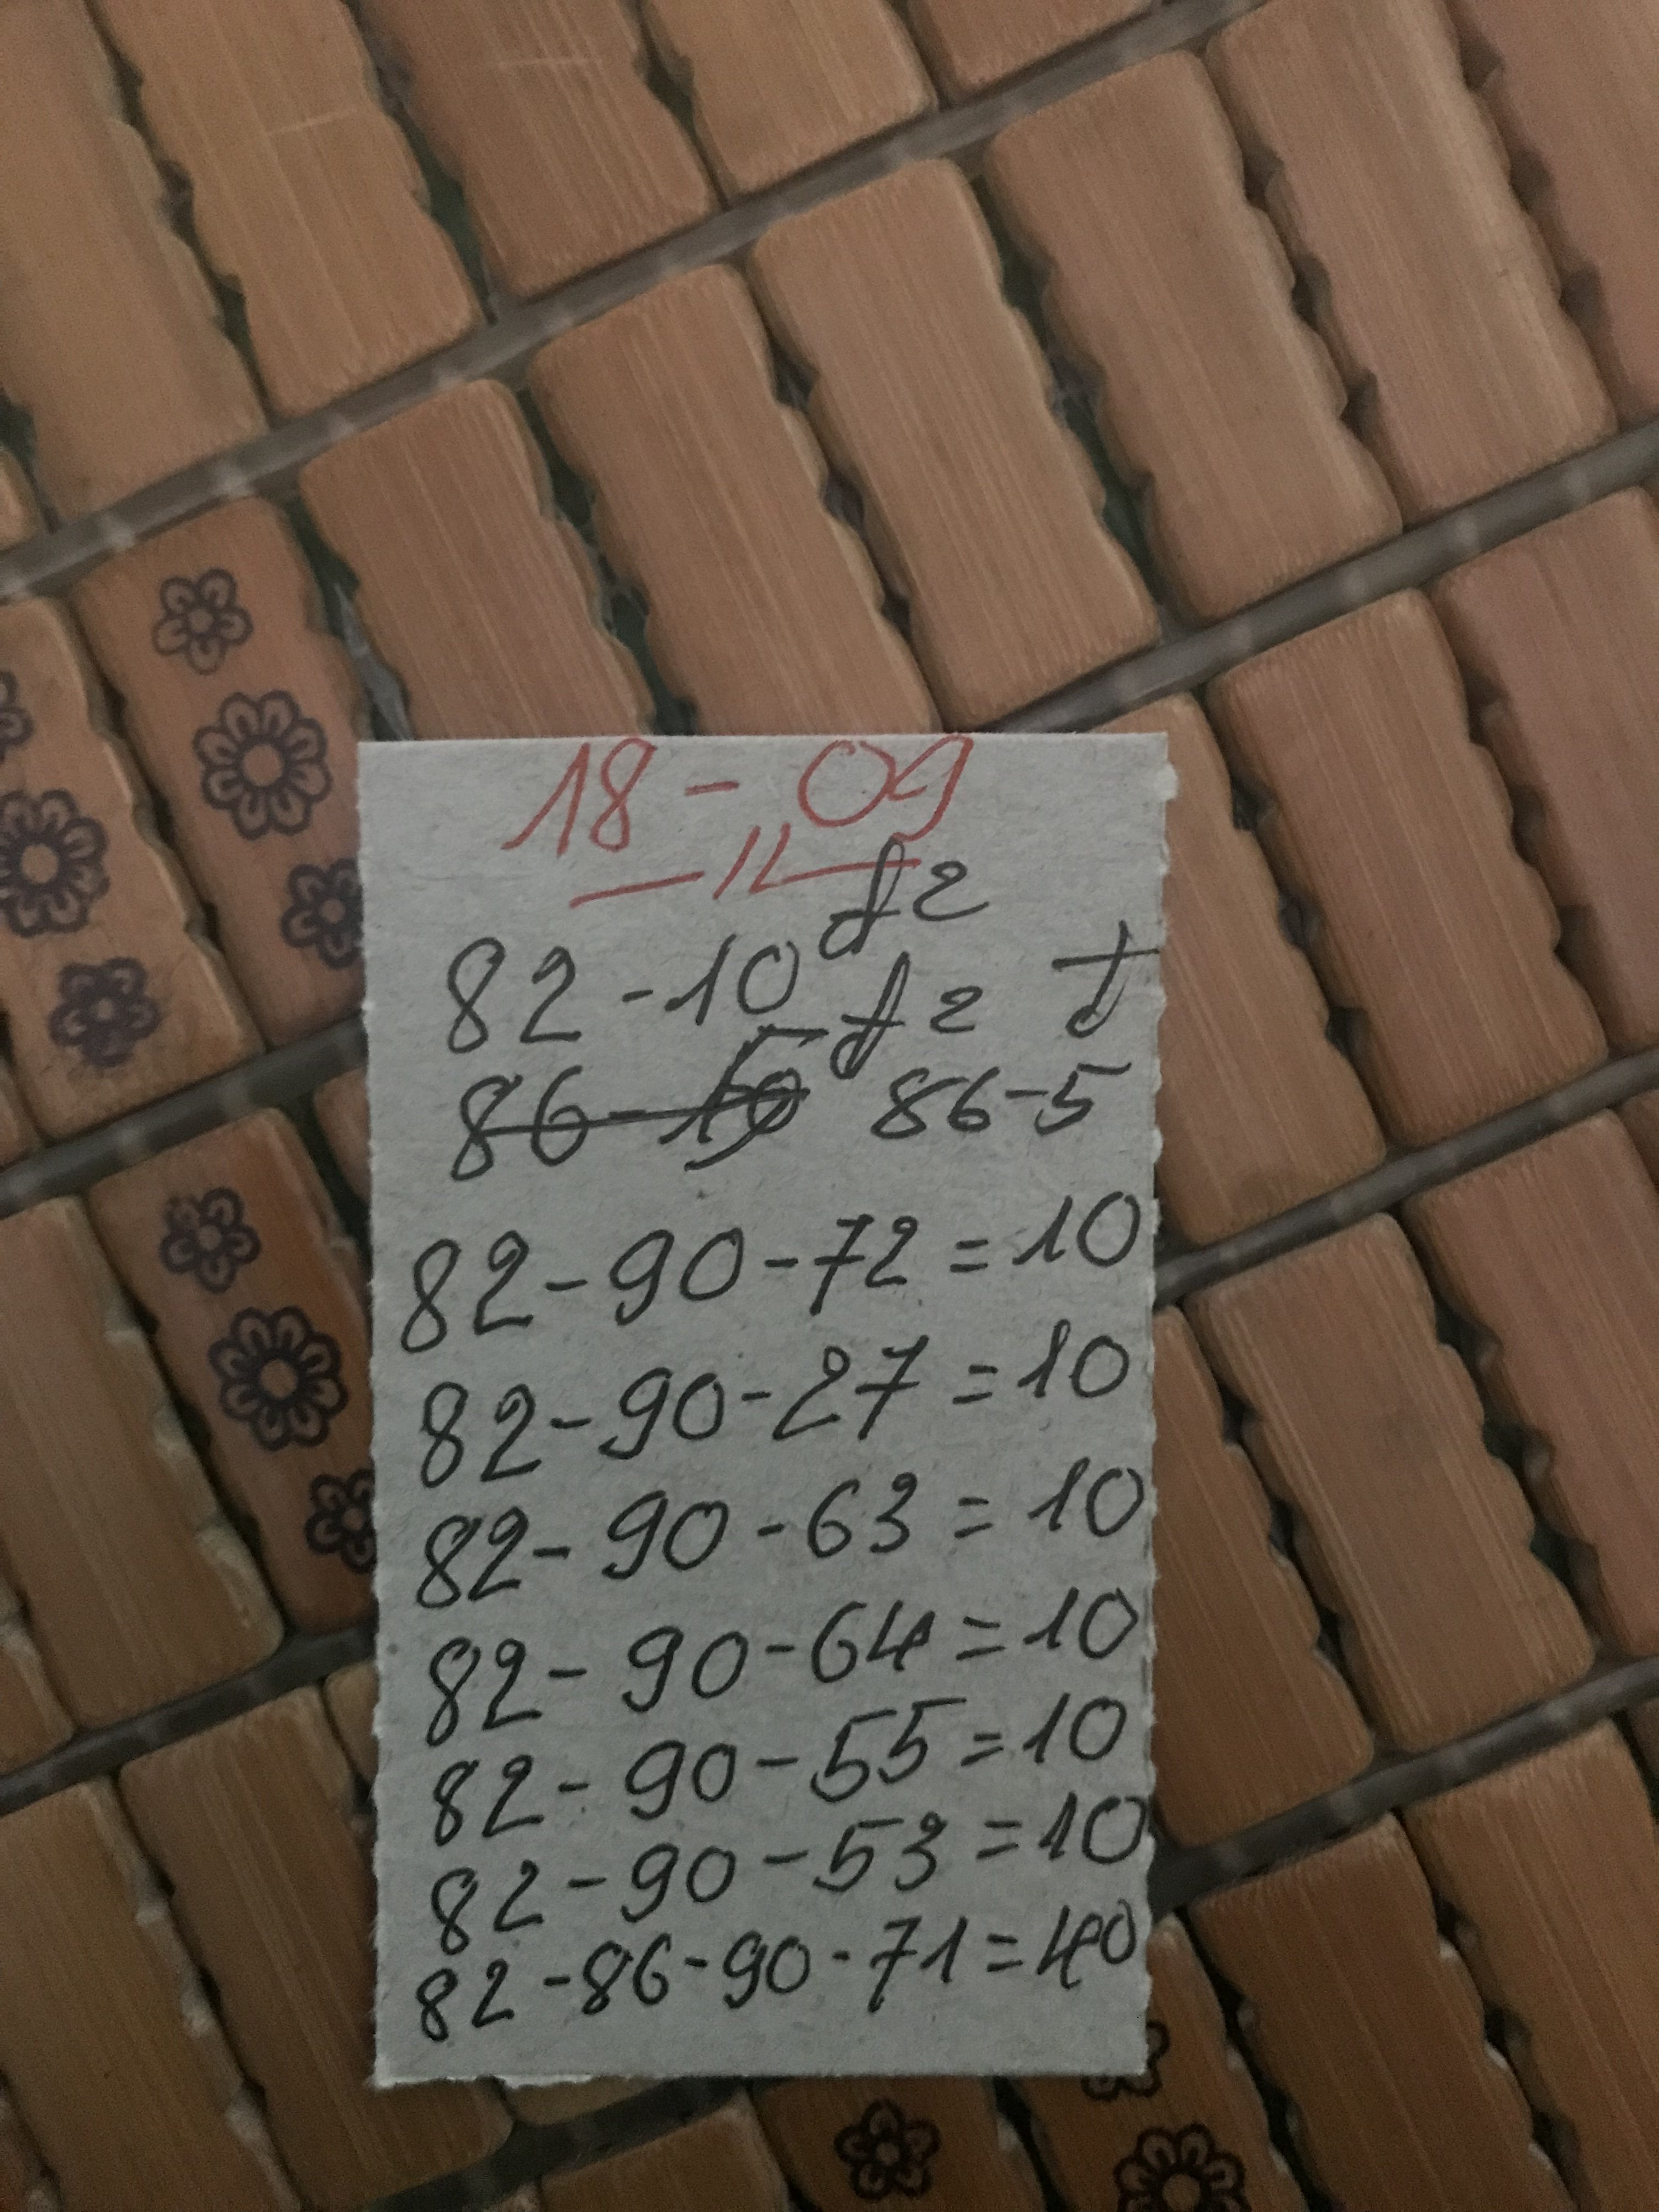 18-09
82-10 d2
d2 đ
86-5
82-90-72=10
82-90-27=10
82-90-63=10
82-90-64=10
82-90-55=10
82-90-53=10
82-86-90-71=40